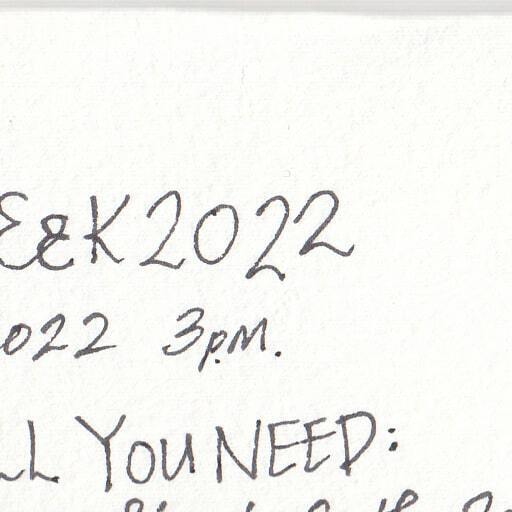 EEK 2022
2022 3pm.
LL YOU NEED: